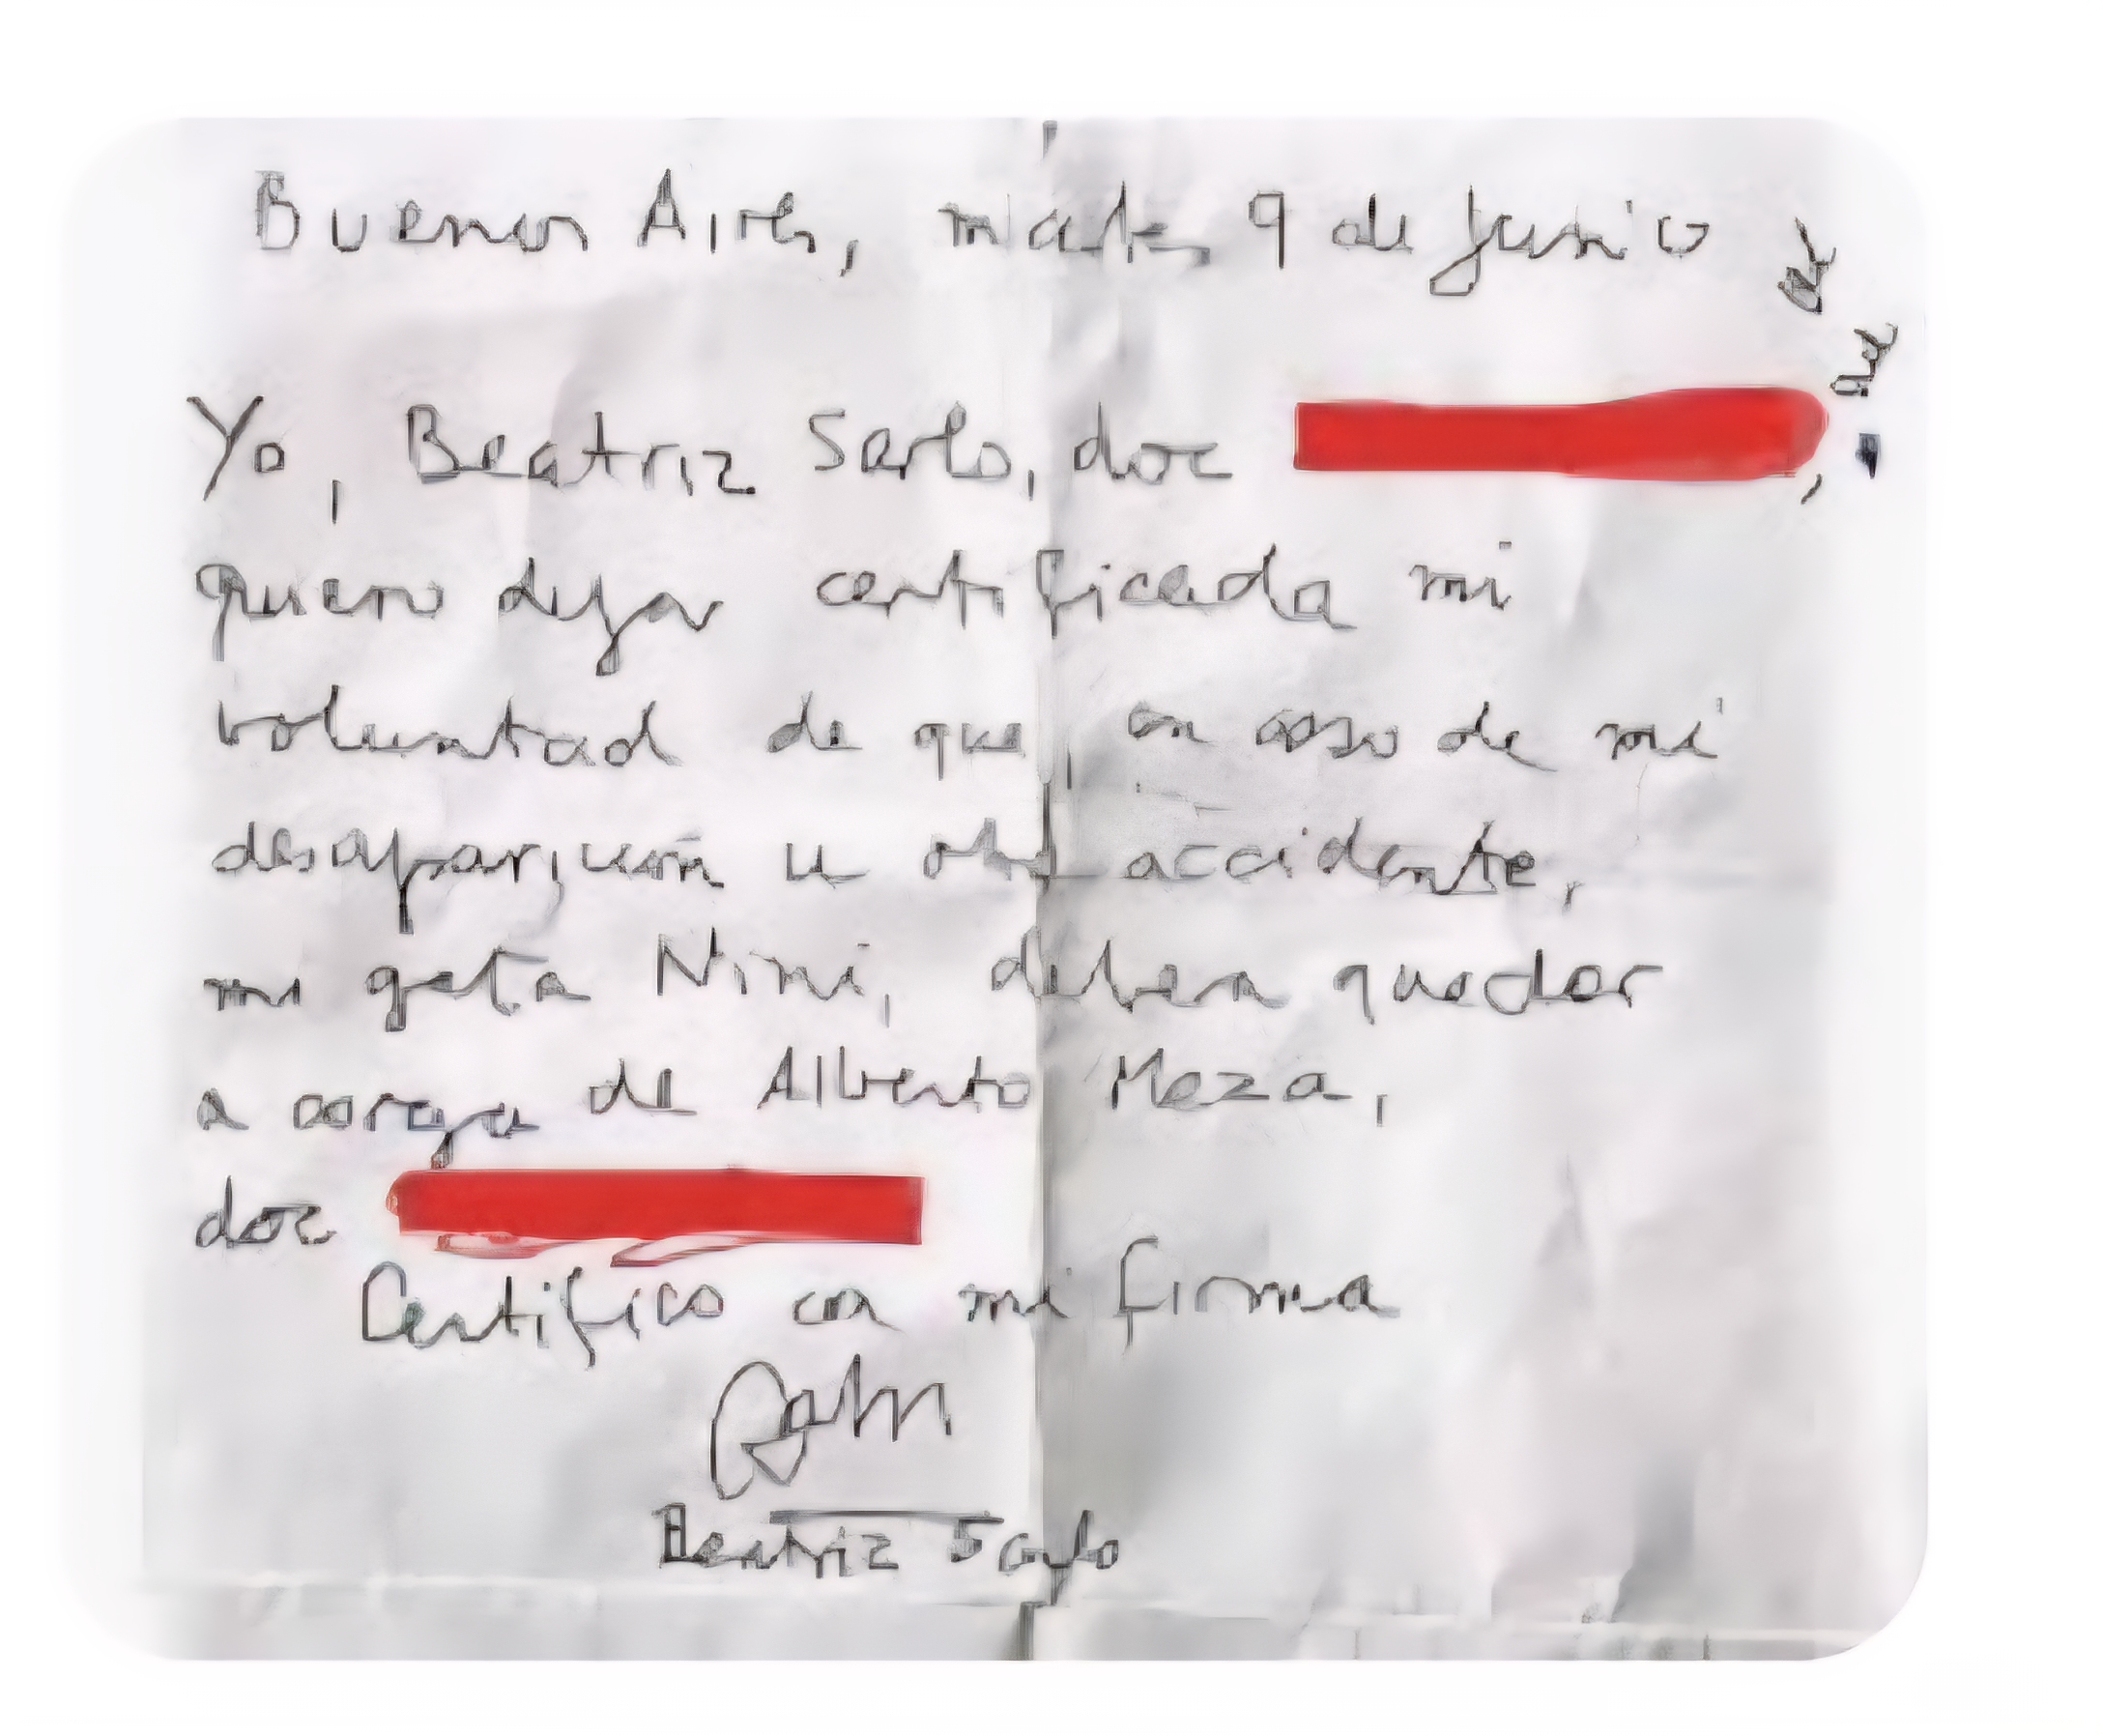 Buenos Aires, martes 9 de junio
Yo, Beatriz Sarlo, doc
quiero dejar certificada mi
voluntad de que, en caso de mi
desaparición u otro accidente,
mi gata Nini, deberá quedar
a cargo de Alberto Meza,
doc
Certifico con mi firma
Beatriz Sarlo